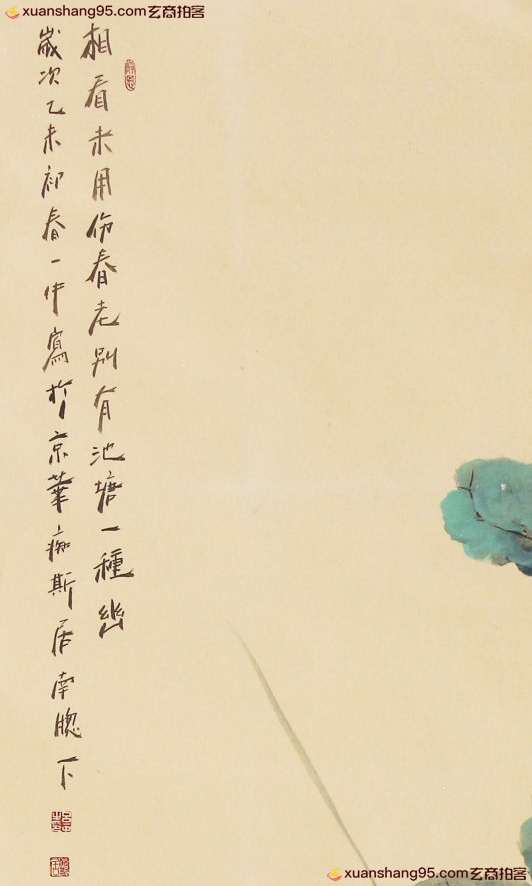 xuanshang95.com玄商拍客
xuanshang95.com玄商拍客
相看未用伤春老别有池塘一種幽
歲次乙未初春一中寫於京華痴斯居南牕下
xuanshang95.com玄商拍客